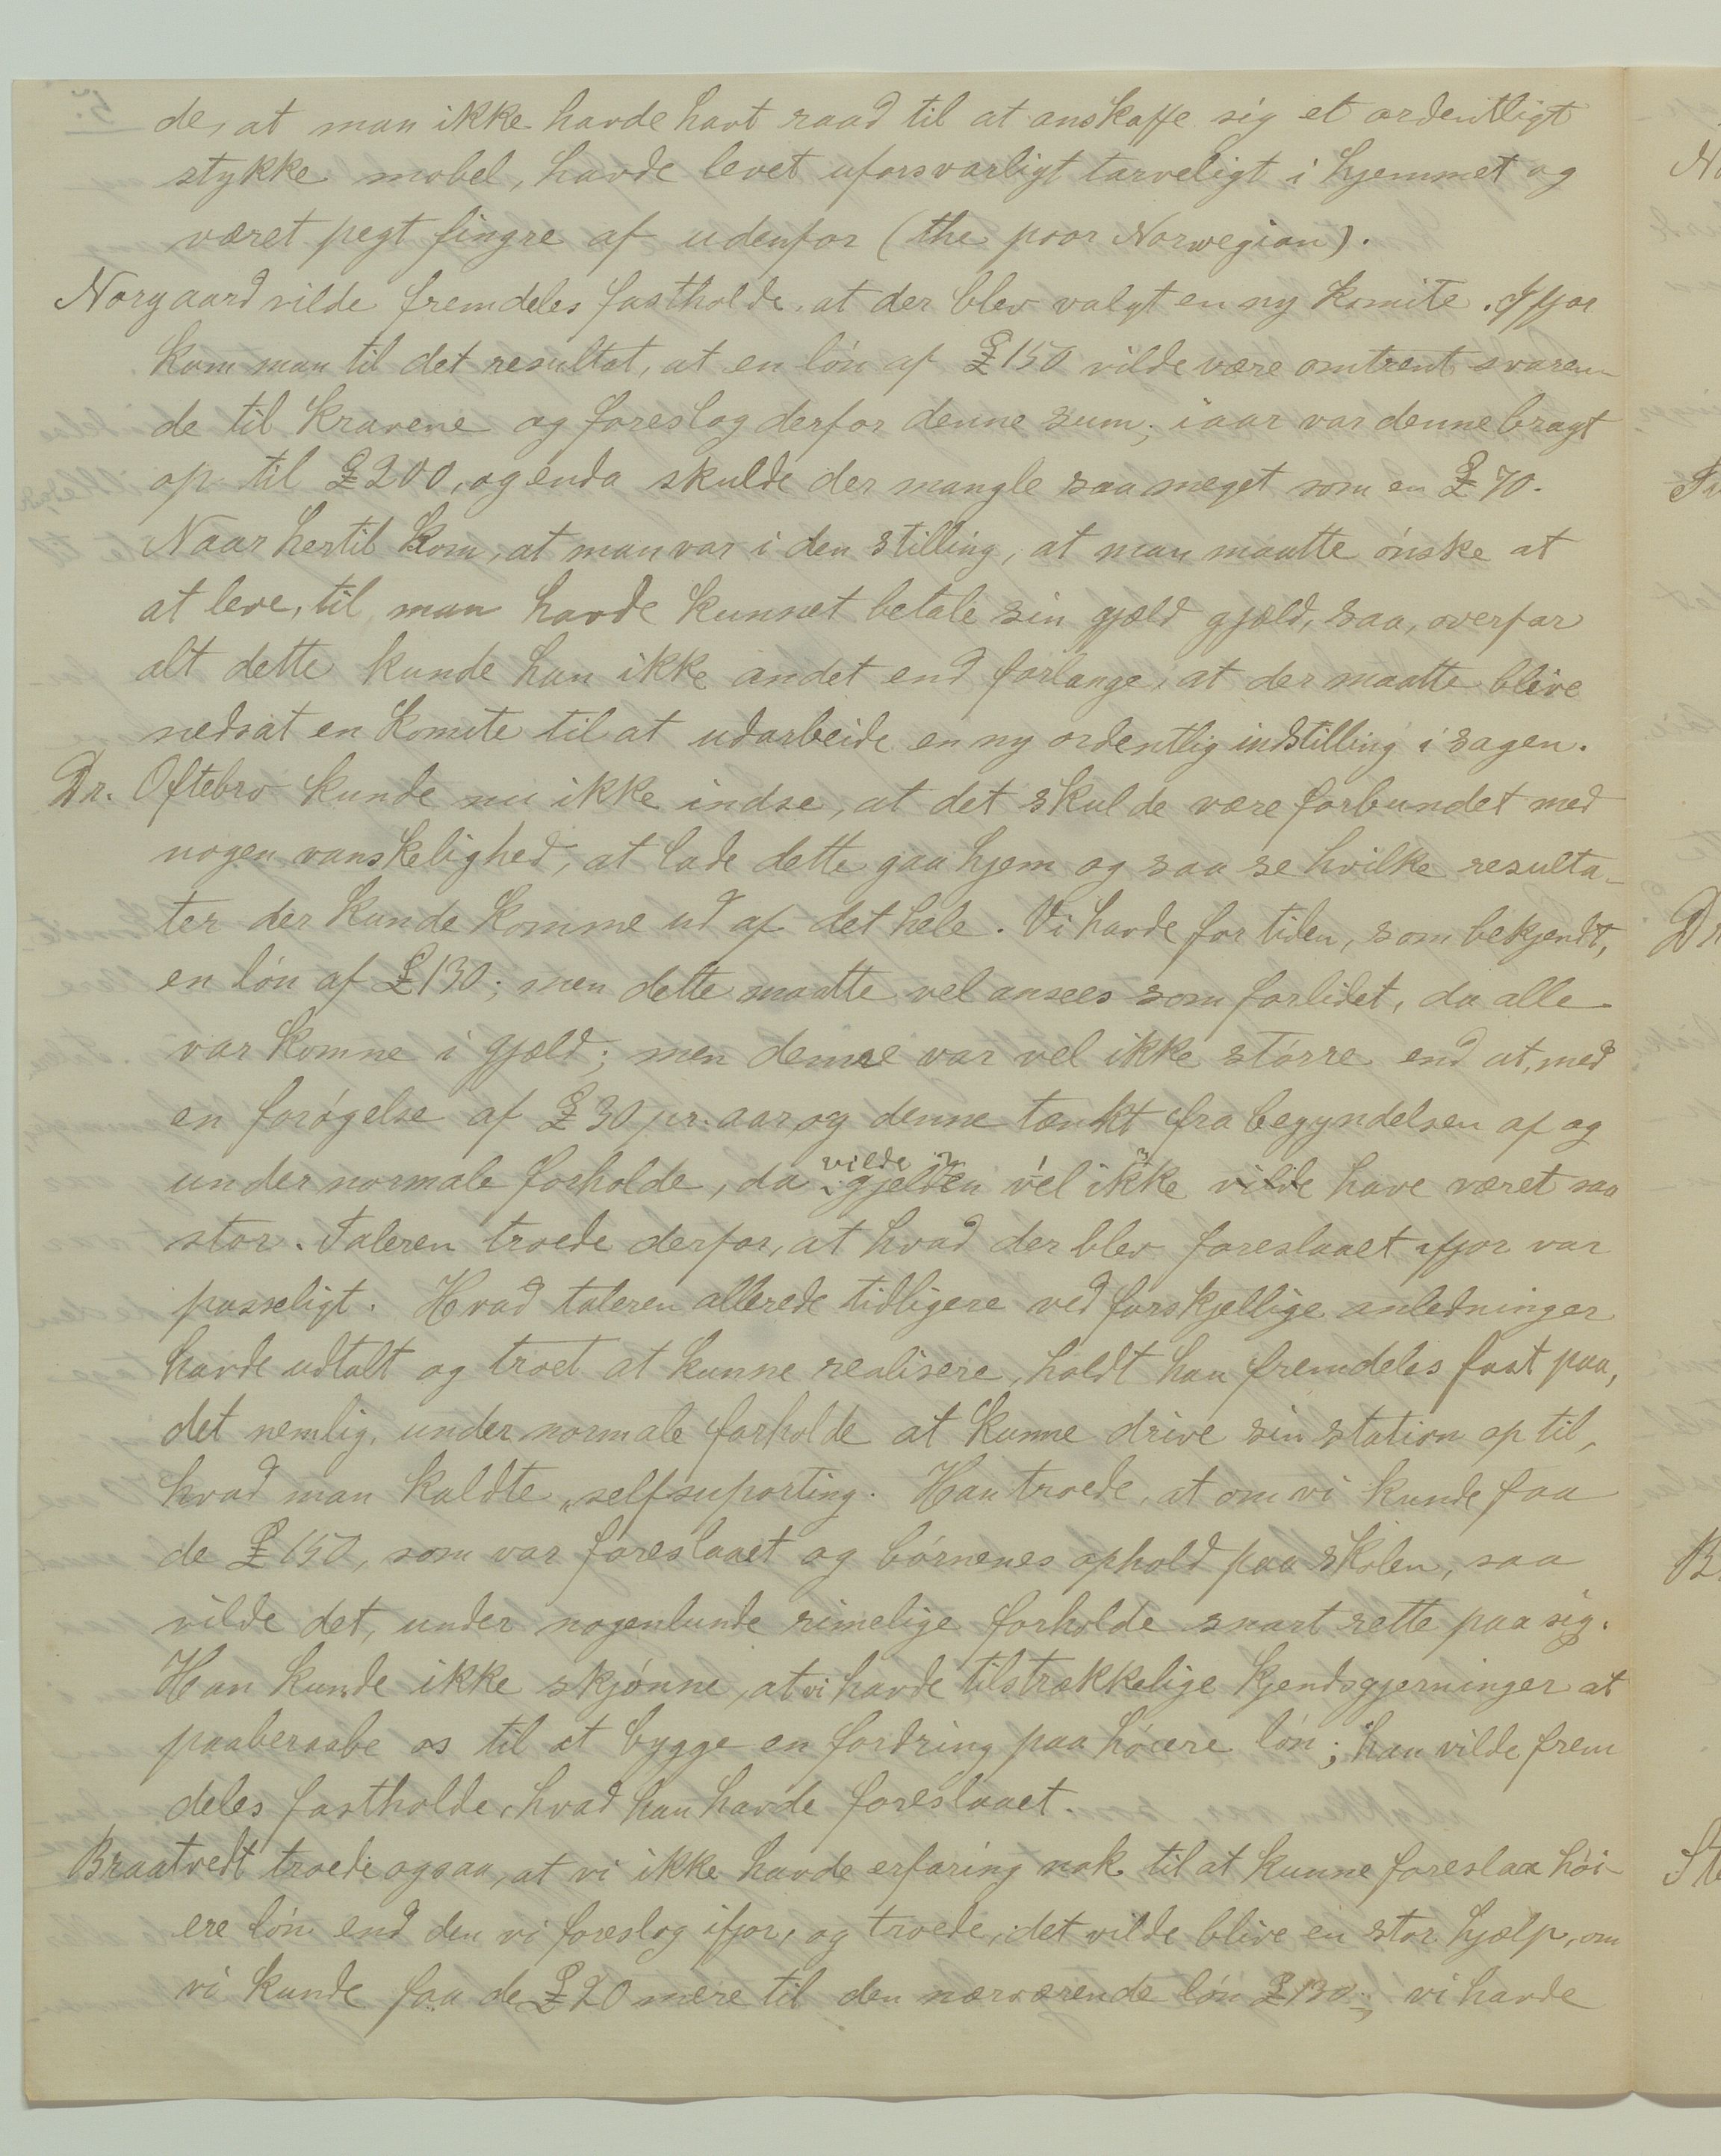 de, at man ikke havde havt raad til at anskaffe sig et ordentligt
stykke møbel, havde levet uforsvarligt tarveligt i hjemmet og
været pegt fingre af udenfor (the poor Norwegian).
Norgaard vilde fremdeles fastholde, at der blev valgt en ny komite. Ifjor
kom man til det resultat, at en lón af £150 vilde være omtrent svaren-
de til kravene og foreslog derfor denne sum; iaar var denne bragt
op til £200, og enda skulde der mangle saa meget som en £70.
Naar hertil kom, at man var i den stilling, at man maatte ónske at
at leve, til man havde kunnet betale sin gjæld gjæld, saa, overfor
alt dette kunde han ikke andet end forlange, at der maatte blive
nedsat en komite til at udarbeide en ny ordentlig indstilling i sagen.
Dr. Oftebro kunde nu ikke indse, at det skulde være forbundet med
nogen vanskelighed, at lade dette gaa hjem og saa se hvilke resulta-
ter der kunde komme ud af det hele. Vi havde for tiden, som bekjendt,
en lón af £130; men dette maatte vel ansees som forlidet, da alle
var komne i gjæld; men denne var vel ikke stórre end at, med
en forógelse af £30 pr. aar og denne tænkt fra begyndelsen af og
under normale forholde, da vilde gjelden vel ikke vilde have været saa
stor. Taleren troede derfor, at hvad der blev foreslaaet ifjor var
passeligt. Hvad taleren allerede tidligere ved forskjellige anledninger
havde udtalt og troet at kunne realisere, holdt han fremdeles fast paa,
det nemlig, under normale forholde at kunne drive sin station op til,
hvad man kaldte „selfsuporting. Han troede, at om vi kunde faa
de £150, som var foreslaaet og bórnenes ophold paa skolen, saa
vilde det, under nogenlunde rimelige forholde snart rette paa sig.
Han kunde ikke skjónne, at vi havde tilstrækkelige kjendsgjerninger at
paaberaabe os til at bygge en fordring paa hóiere lón; han vilde frem
deles fastholde, hvad han havde foreslaaet.
Braatvedt troede ogsaa, at vi ikke havde erfaring nok til at kunne foreslaa hói-
ere lón end den vi foreslog ifjor, og troede, det vilde blive en stor hjælp, om
vi kunde faa de £20 mere til den nærværende lón £130; vi havde